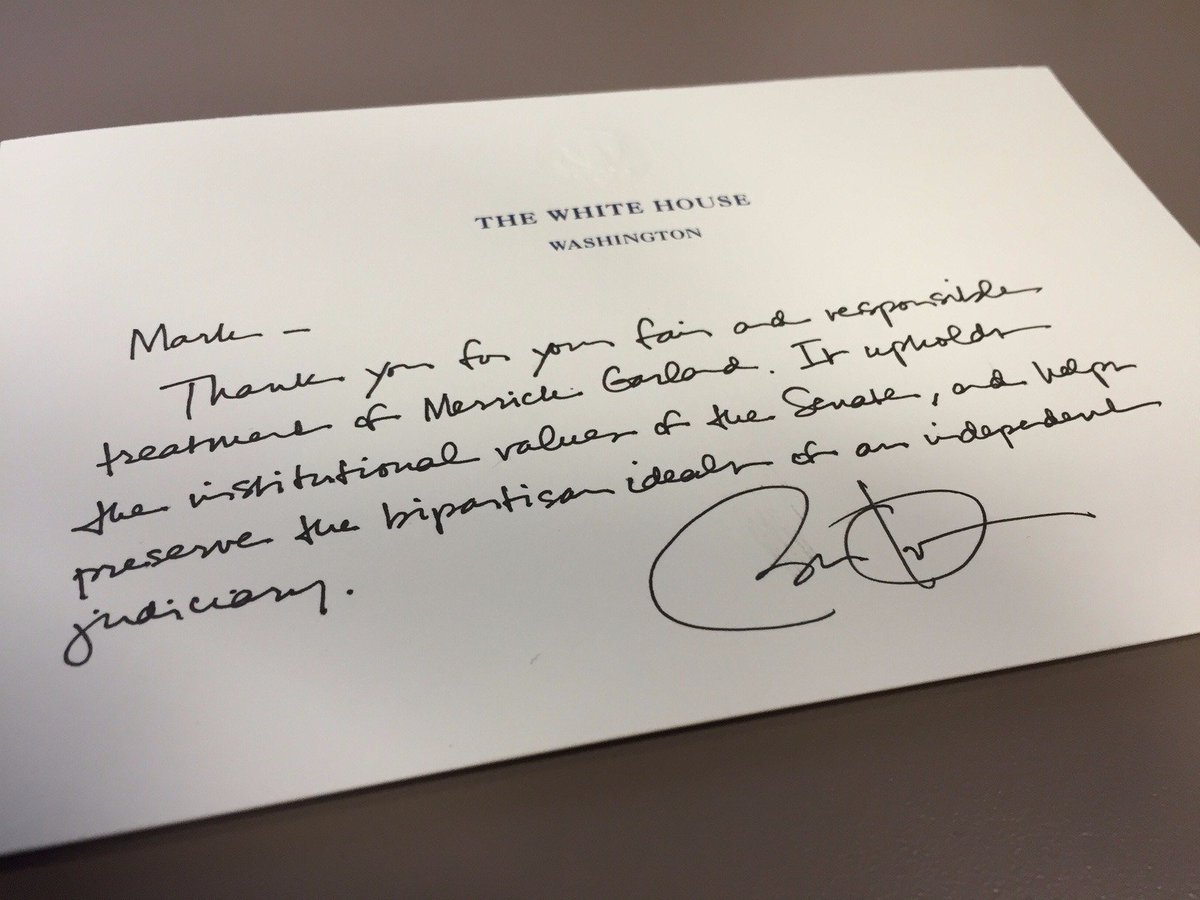 THE WHITE HOUSE
WASHINGTON
Mark –
Thank you for your fair and responsible
treatment of Merrick Garland. It upholds
the institutional values of the Senate, and helps
preserve the bipartisan ideals of an independent
judiciary.